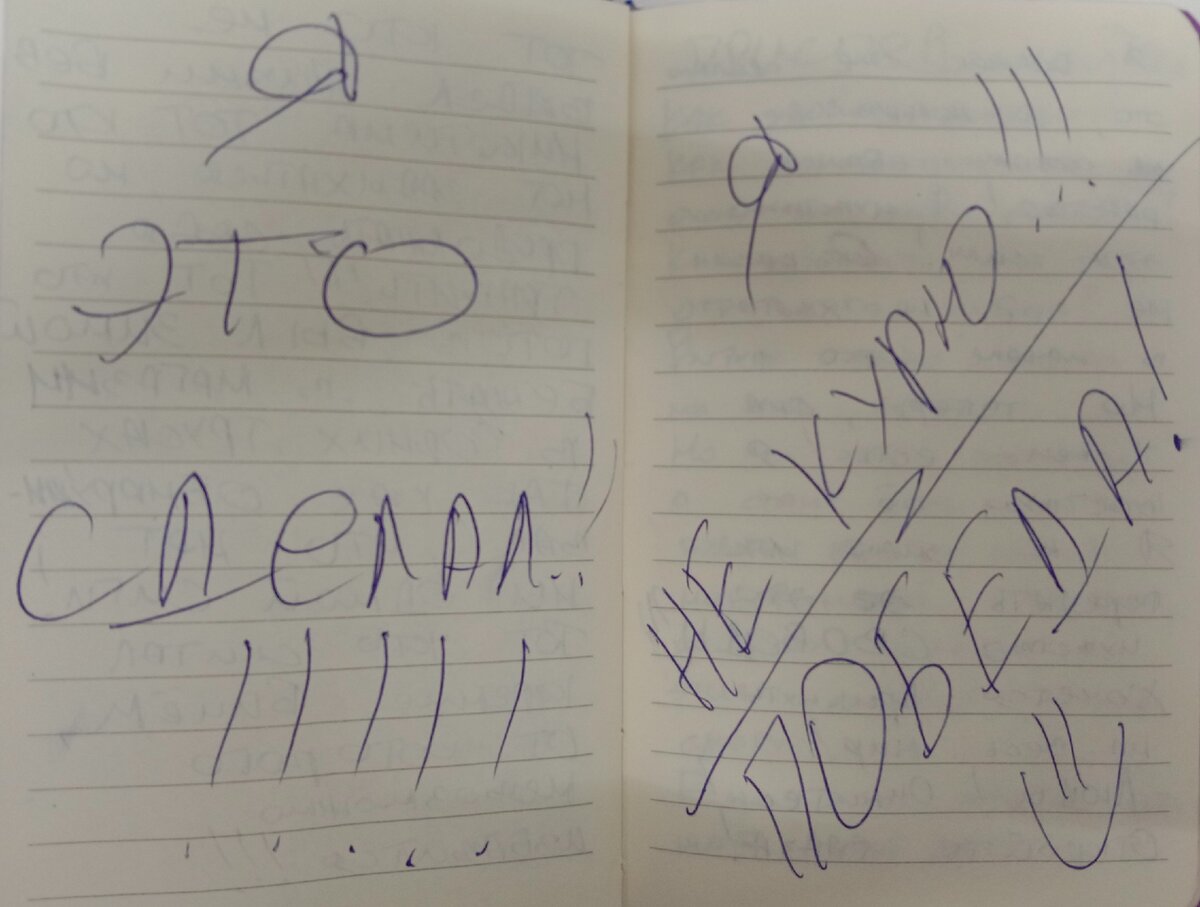 Я
ЭТО
СДЕЛАЛ!!
!!!!!
Я
НЕ КУРЮ!!!
ПОБЕДА!